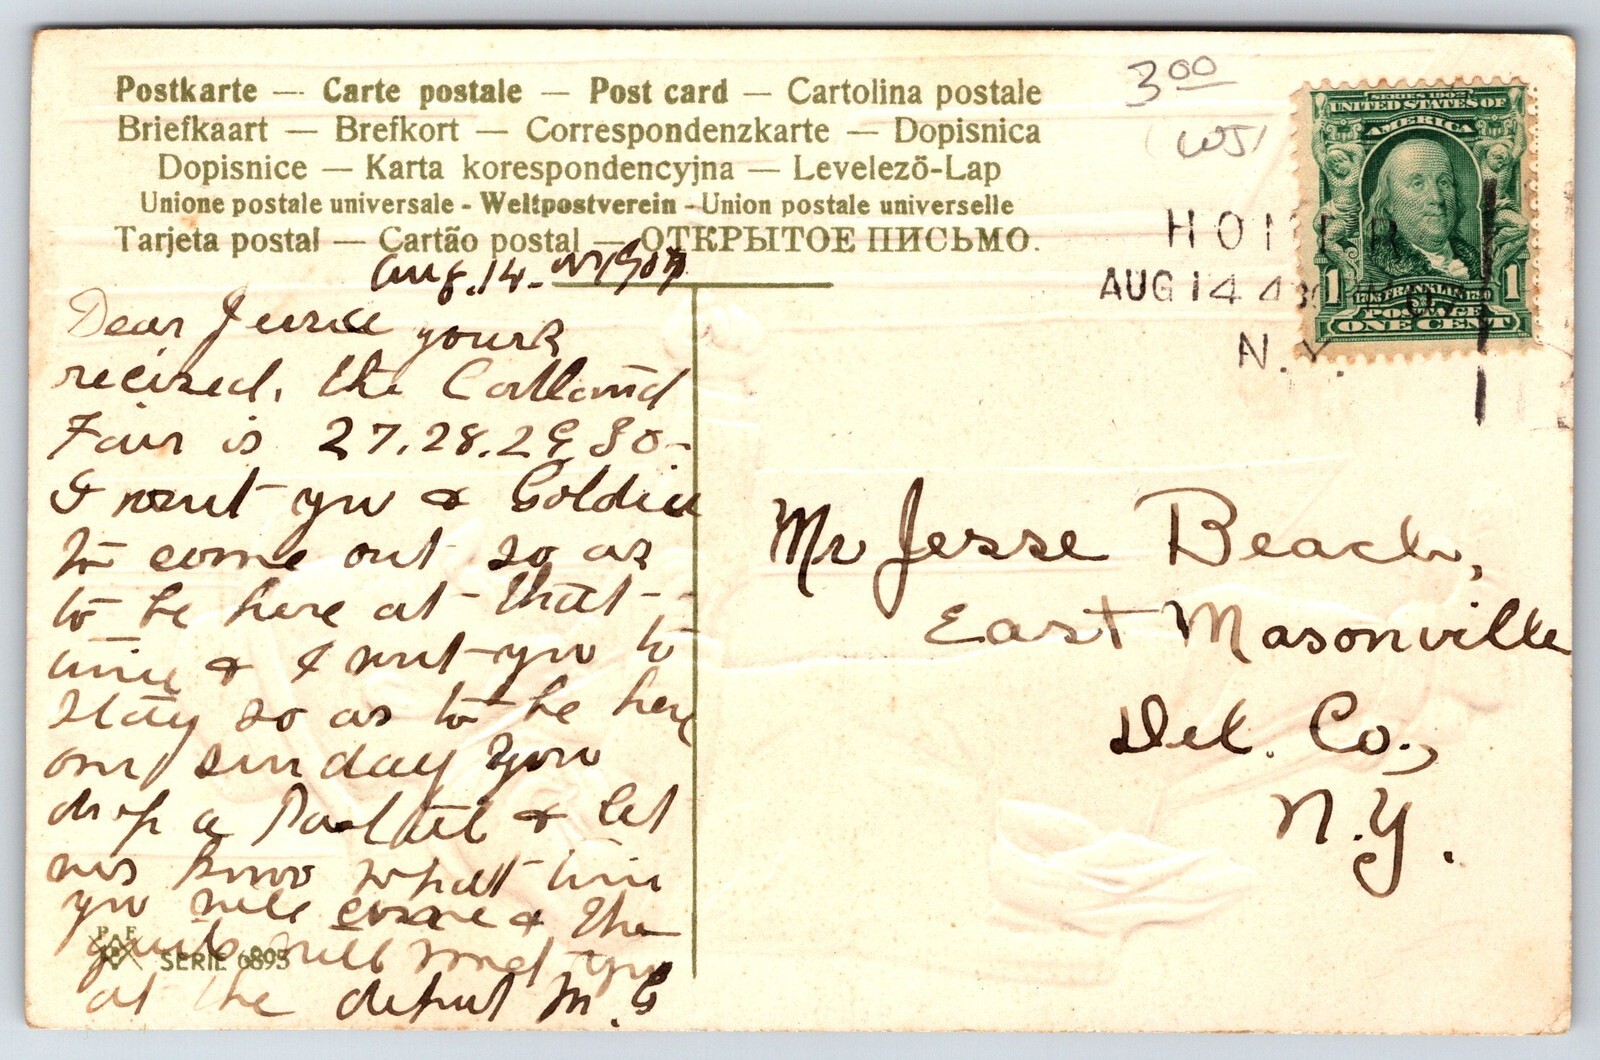 Postkarte — Carte postale — Post card — Cartolina postale
Briefkaart — Brefkort — Correspondenzkarte — Dopisnica
Dopisnice — Karta korespondencyjna — Levelezõ-Lap
Unione postale universale - Weltpostverein - Union postale universelle
Tarjeta postal — Cartão postal — ОТКРЫТОЕ ПИСЬМО.
3 00
WJ
SERIES 1902
UNITED STATES OF
AMERICA
1 1
FRANKLIN
POSTAGE
ONE CENT
HOMER
AUG 14 4 30
N.Y.
Aug. 14. 1907
Dear Jessie yours
recised, the Cortland
Fair is 27.28.29 30-
I want you & Goldie
to come out so as
to be here at that
time & I want you to
stay so as to be here
on sunday you
drop a Postal & let
us know what time
you will come & the
will meet you
at the deput M. G
P F
SERIE 6895
Mr Jesse Beach,
East Masonville
Del. Co.,
N.Y.